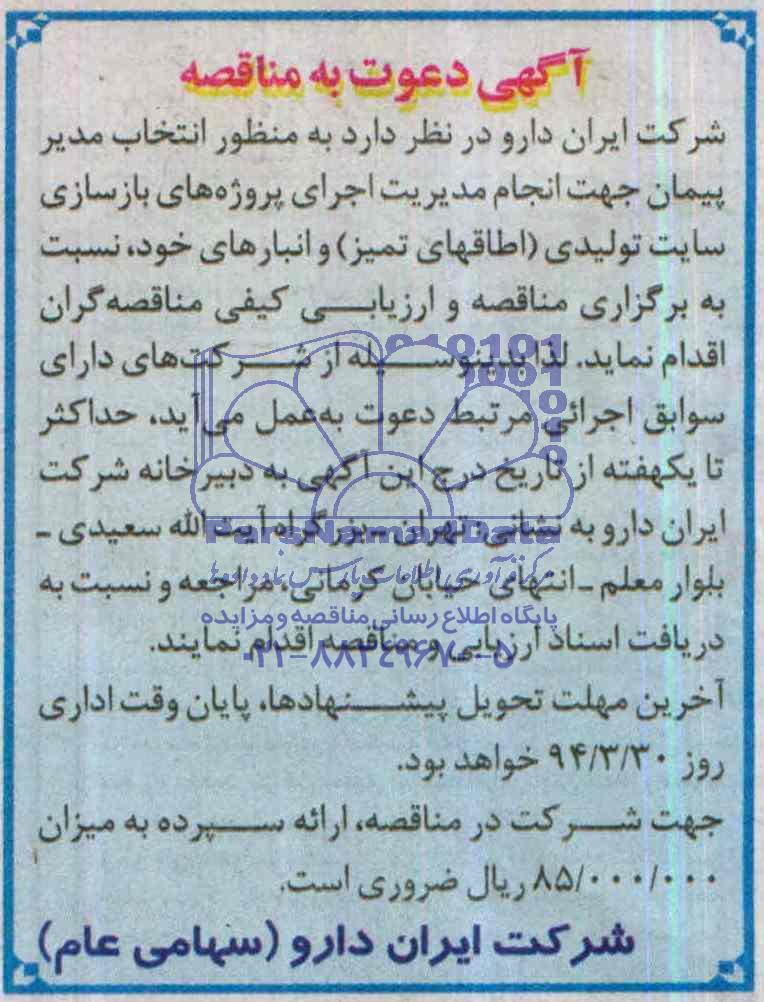 آگهی دعوت به مناقصه
شرکت ایران دارو در نظر دارد به منظور انتخاب مدیر
پیمان جهت انجام مدیریت اجرای پروژه‌های بازسازی
سایت تولیدی (اطاقهای تمیز) و انبارهای خود، نسبت
به برگزاری مناقصه و ارزیابی کیفی مناقصه‌گران
اقدام نماید. لذا بدینوسیله از شرکت‌های دارای
سوابق اجرائی مرتبط دعوت به‌عمل می‌آید، حداکثر
تا یکهفته از تاریخ درج این آگهی به دبیرخانه شرکت
ایران دارو به نشانی: تهران ـ بزرگراه آیت‌الله سعیدی ـ
بلوار معلم ـ انتهای خیابان کرمانی، مراجعه و نسبت به
دریافت اسناد ارزیابی و مناقصه اقدام نمایند.
آخرین مهلت تحویل پیشنهادها، پایان وقت اداری
روز ۹۴/۳/۳۰ خواهد بود.
جهت شرکت در مناقصه، ارائه سپرده به میزان
۸۵/۰۰۰/۰۰۰ ریال ضروری است.
شرکت ایران دارو (سهامی عام)
ParsNamadData
مرکز فرآوری اطلاعات پارس نماد داده‌ها
پایگاه اطلاع رسانی مناقصه و مزایده
۰۲۱-۸۸۳۴۹۶۷۰-۵